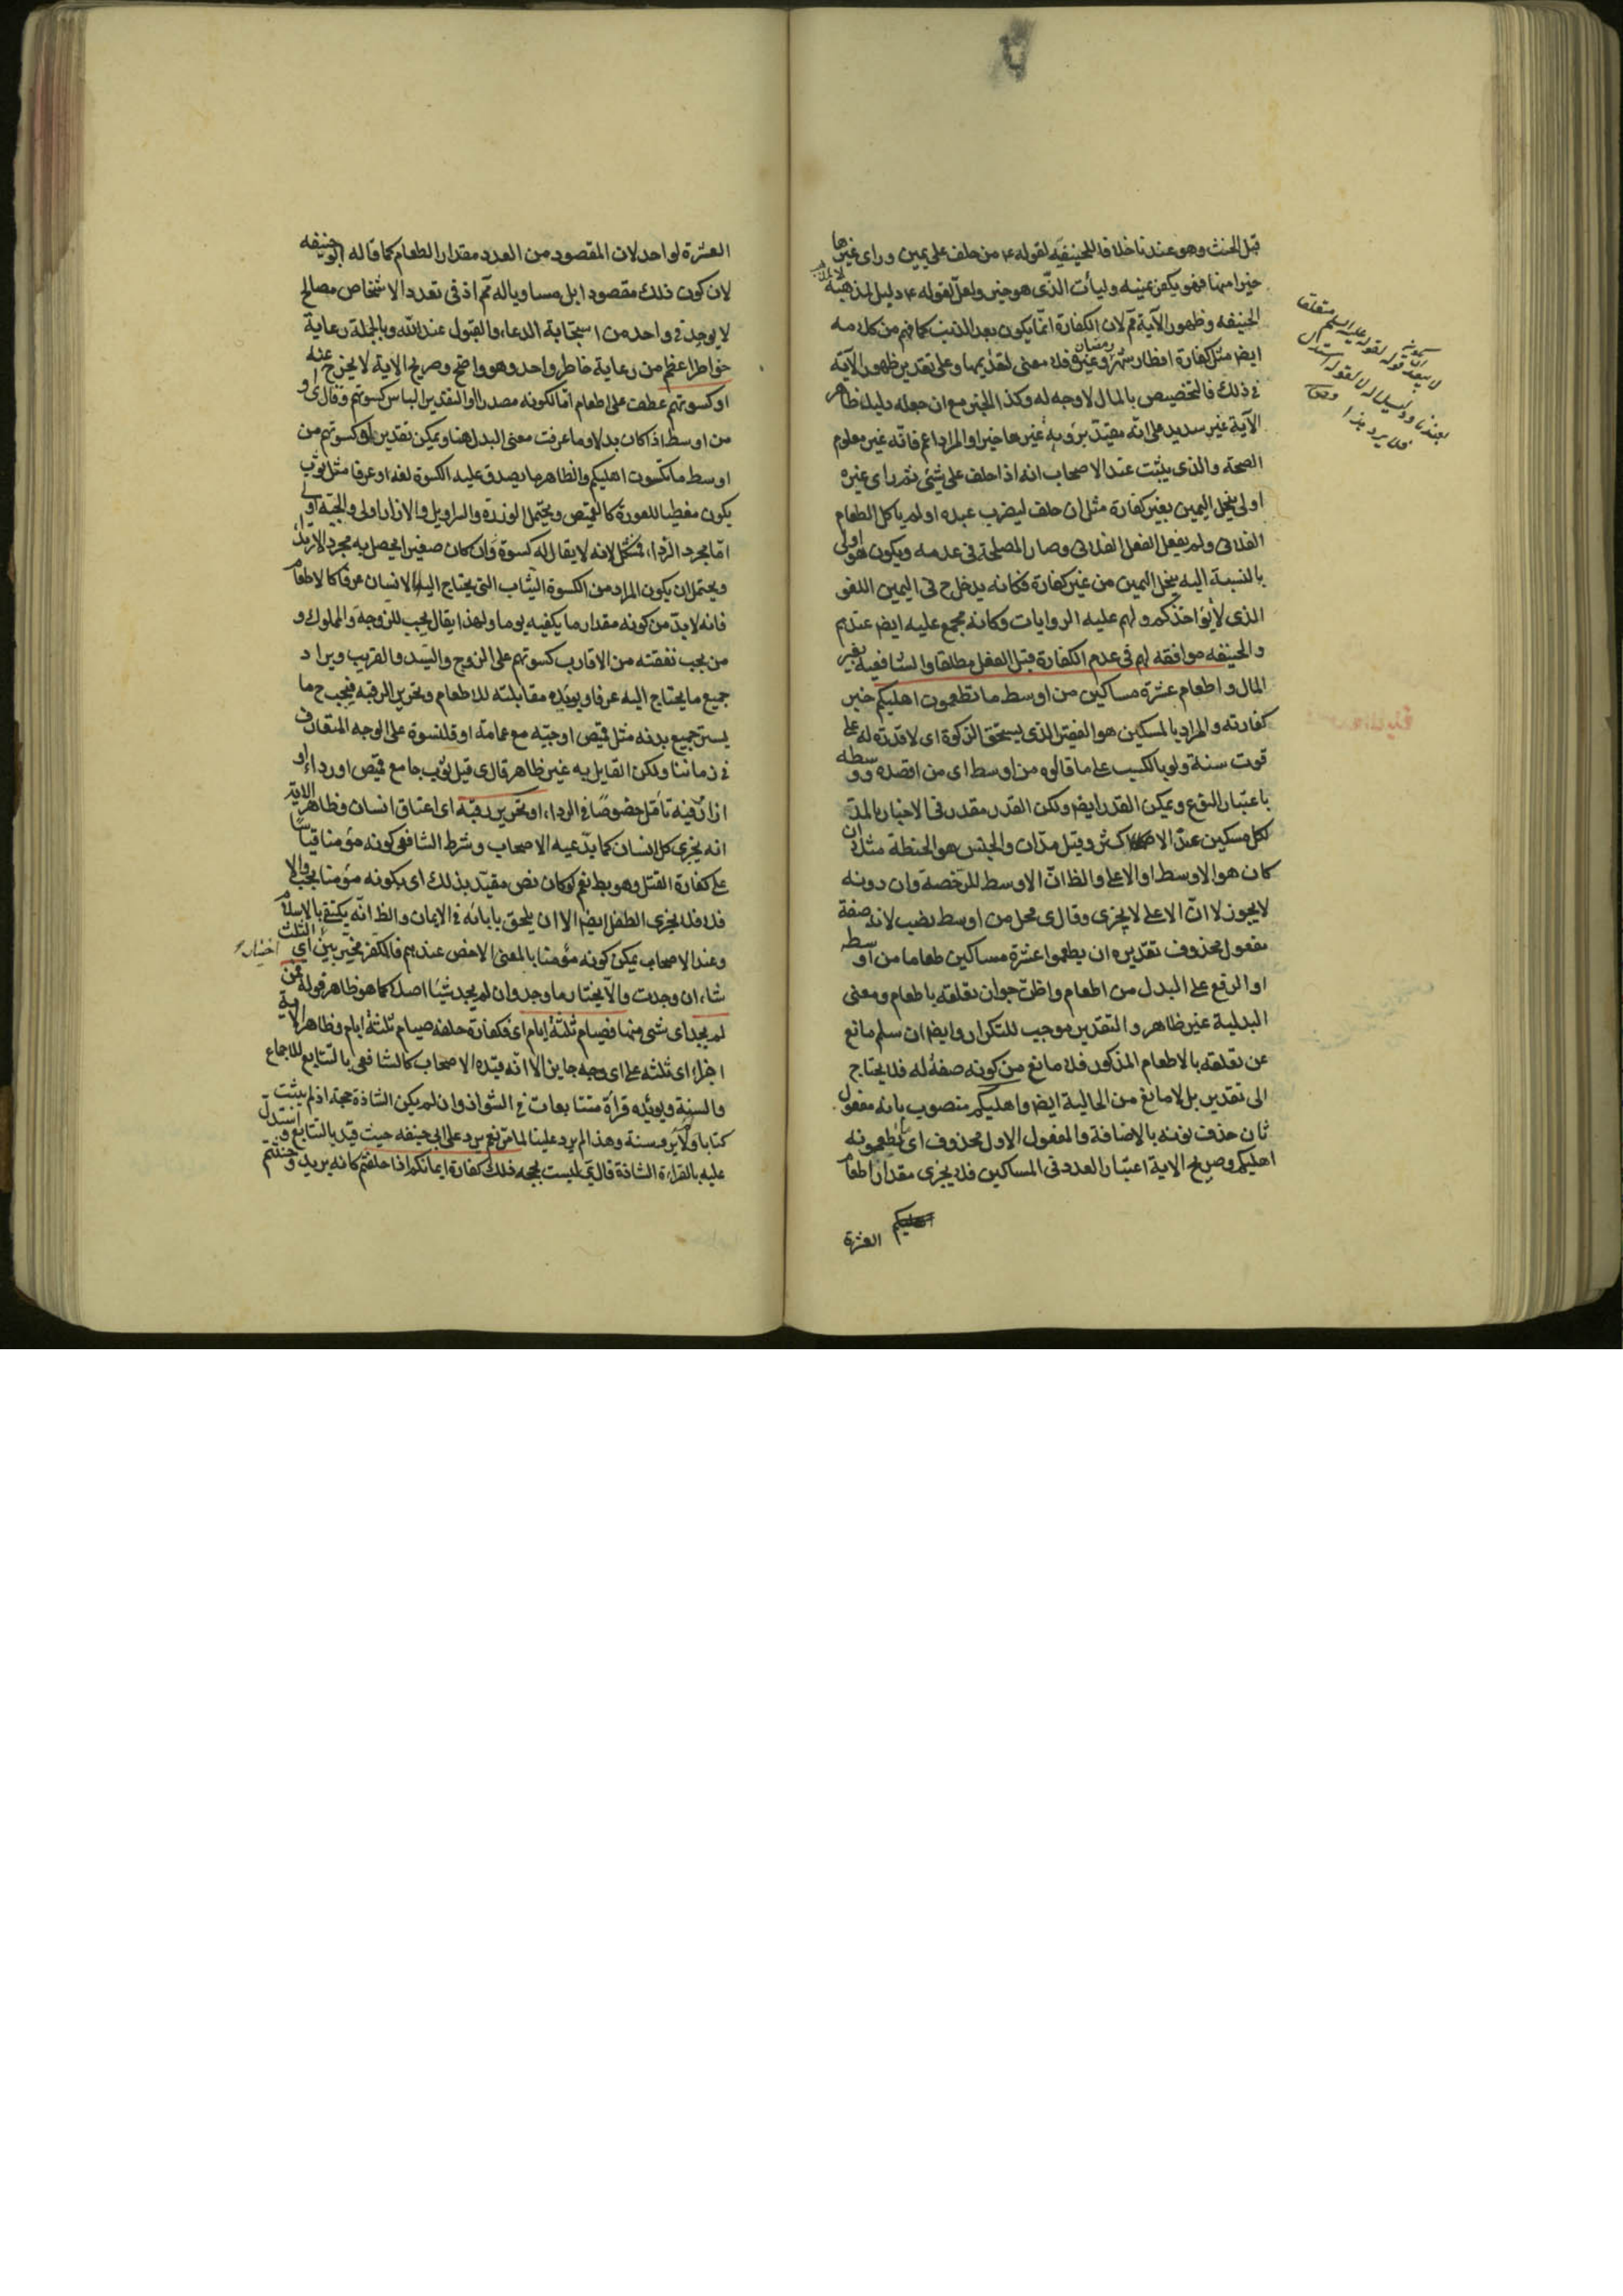 قبل الحنث وهو عندنا خلافا للحنيفيه لقوله ع من حلف على يمين وراى غيرها
خيرا منها فهو يكفر عينه وليأت الذى هو خير ولعل لقوله ع دليل لمذهبه
الحنيفه وظهور الآية ثم لان الكفارة انما يكون بعد الذنب كما فهم من كلامه
ايضا مثل كفارة افطار شهر رمضان وغيره فلا معنى لتقديمها وعلى تقدير ظهور الآية
فى ذلك فالتخصيص بالمال لا وجه له وكذا الخبر مع ان جعله دليلا ظاهر
الآية غير سديد على انه مقيد برؤية غيرها خيرا والمراد اعم فانه غير معلوم
الصحة والذى يثبت عند الاصحاب انه اذا حلف على شئ ثم راى غيره
اولى ينحل اليمين بغير كفارة مثل ان حلف ليضرب عبده او لم ياكل الطعام
الفلانى ولم يفعل الفعل الفلانى وصار المصلحة فى عدمه ويكون هو اولى
بالنسبة اليه ينحل اليمين من غير كفارة فكانه يدخل ح فى اليمين اللغو
الذى لا يؤاخذكم ولهم عليه الروايات وكانه مجمع عليه ايضا عندهم
والحنيفه موافقه لهم فى عدم الكفارة قبل الفعل مطلقا والشافعية بغير
المال واطعام عشرة مساكين من اوسط ما تطعمون اهليكم خبر
كفارته والمراد بالمسكين هو الفقير الذى يستحق الزكوة اى لا قدرة له على
قوت سنة ولو بالكسب على ما قالوه من اوسط اى من اقصده ووسطه
باعتبار النوع ويمكن القدر ايضا ولكن القدر مقدر فى الاخبار بالمد
لكل مسكين عند الاكثر وقيل مدان والجنس هو الحنطة مثلا ان
كان هو الاوسط او الاعلى والظ ان الاوسط للرخصة وان دونه
لا يجوز لا ان الاعلى لا يجزى وقال ى محل من اوسط نصب لانه صفة
مفعول محذوف تقديره ان يطعموا عشرة مساكين طعاما من اوسطه
او الرفع على البدل من اطعام واظن جواز تعلقه باطعام ومعنى
البدلية غير ظاهر والتقدير موجب للتكرار وايضا ان سلم مانع
عن تعلقه بالاطعام المذكور فلا مانع من كونه صفة له فلا يحتاج
الى تقدير بل لا مانع من الحالية ايضا واهليكم منصوب بانه مفعول
ثان حذف نونه بالاضافة والمفعول الاول محذوف اى ما تطعمونه
اهليكم وصريح الاية اعتبار العدد فى المساكين فلا يجزى مقدار اطعام
العشرة
العشرة لواحد لان المقصود من العدد مقدار الطعام كما قاله ابو حنيفه
لان كون ذلك مقصودا بل مساويا له ثم اذ فى تعدد الاشخاص مصالح
لا يوجد فى واحد من استجابة الدعاء والقبول عند الله وبالجملة رعاية
خواطر اعظم من رعاية خاطر واحد وهو واضح وصريح الاية لا يخرج عنه
او كسوتهم عطف على اطعام اما لكونه مصدرا او التقدير الباس كسوتهم وقال ى او
من اوسط اذا كان بدلا وما عرفت معنى البدل هنا ويمكن تقدير او كسوتهم من
اوسط ما تكسون اهليكم والظاهر ما يصدق عليه الكسوة لغة او عرفا مثل ثوب
يكون مغطيا للعورة كالقميص ويحتمل الوزرة والسراويل والازار اولى والجبة اولى
اما مجرد الرداء، فمشكل لانه لا يقال له كسوة وان كان صغيرا يحصل به مجرد الارتداء
ويحتمل ان يكون المراد من الكسوة الثياب التى يحتاج اليها الانسان عرفا كالاطعام
فانه لا بد من كونه مقدار ما يكفيه يوما ولهذا يقال يجب للزوجة والمملوك و
من يجب نفقته من الاقارب كسوتهم على الزوج والسيد والقريب ويراد
جميع ما يحتاج اليه عرفا ويؤيده مقابلته للاطعام وتحرير الرقبة فيجب ح ما
يستر جميع بدنه مثل قميص او جبة مع عمامة او قلنسوة على الوجه المتعارف
فى زماننا ولكن القايل به غير ظاهر قال ى قيل ثوب جامع قميص او رداء او
ازار وفيه تأمل خصوصا فى الرداء، او تحرير رقبة اى اعتاق انسان وظاهر الاية
انه يجزى كل انسان كما يدعيه الاصحاب وشرط الشافعى كونه مؤمنا قياسا
على كفارة القتل وهو بط نعم لو كان نص مقيد بذلك اى بكونه مؤمنا يجب والا
فلا فلا يجزى الطفل ايضا الا ان يلحق بابائه فى الايمان والظ انه يكتفى بالاسلام
وعند الاصحاب يمكن كونه مؤمنا بالمعنى الاخص عندهم فالمكفر مخير بين اى الثلث
شاء، ان وجدت والا يختار ما وجد وان لم يجد شيئا اصلا كما هو ظاهر قوله فمن
لم يجد اى شئ منها فصيام ثلثة ايام اى فكفارة حلفه صيام ثلثة ايام وظاهر الاية
اجزاء اى ثلثه على اى وجه جايز الا انه قيده الاصحاب كالشافعى بالتتابع للاجماع
والسنة ويؤيده قراة متتابعات فى الشواذ وان لم يكن الشاذة حجة اذ لم يثبت
كتابا ولا يرو سنة وهذا لم يرد علينا لما مر نعم يرد على ابى حنيفه حيث قيد بالتتابع واستدل
عليه بالقراءة الشاذة قال ى ليست بحجه ذلك كفارة ايمانكم اذا حلفتم كانه يريد وحنثتم